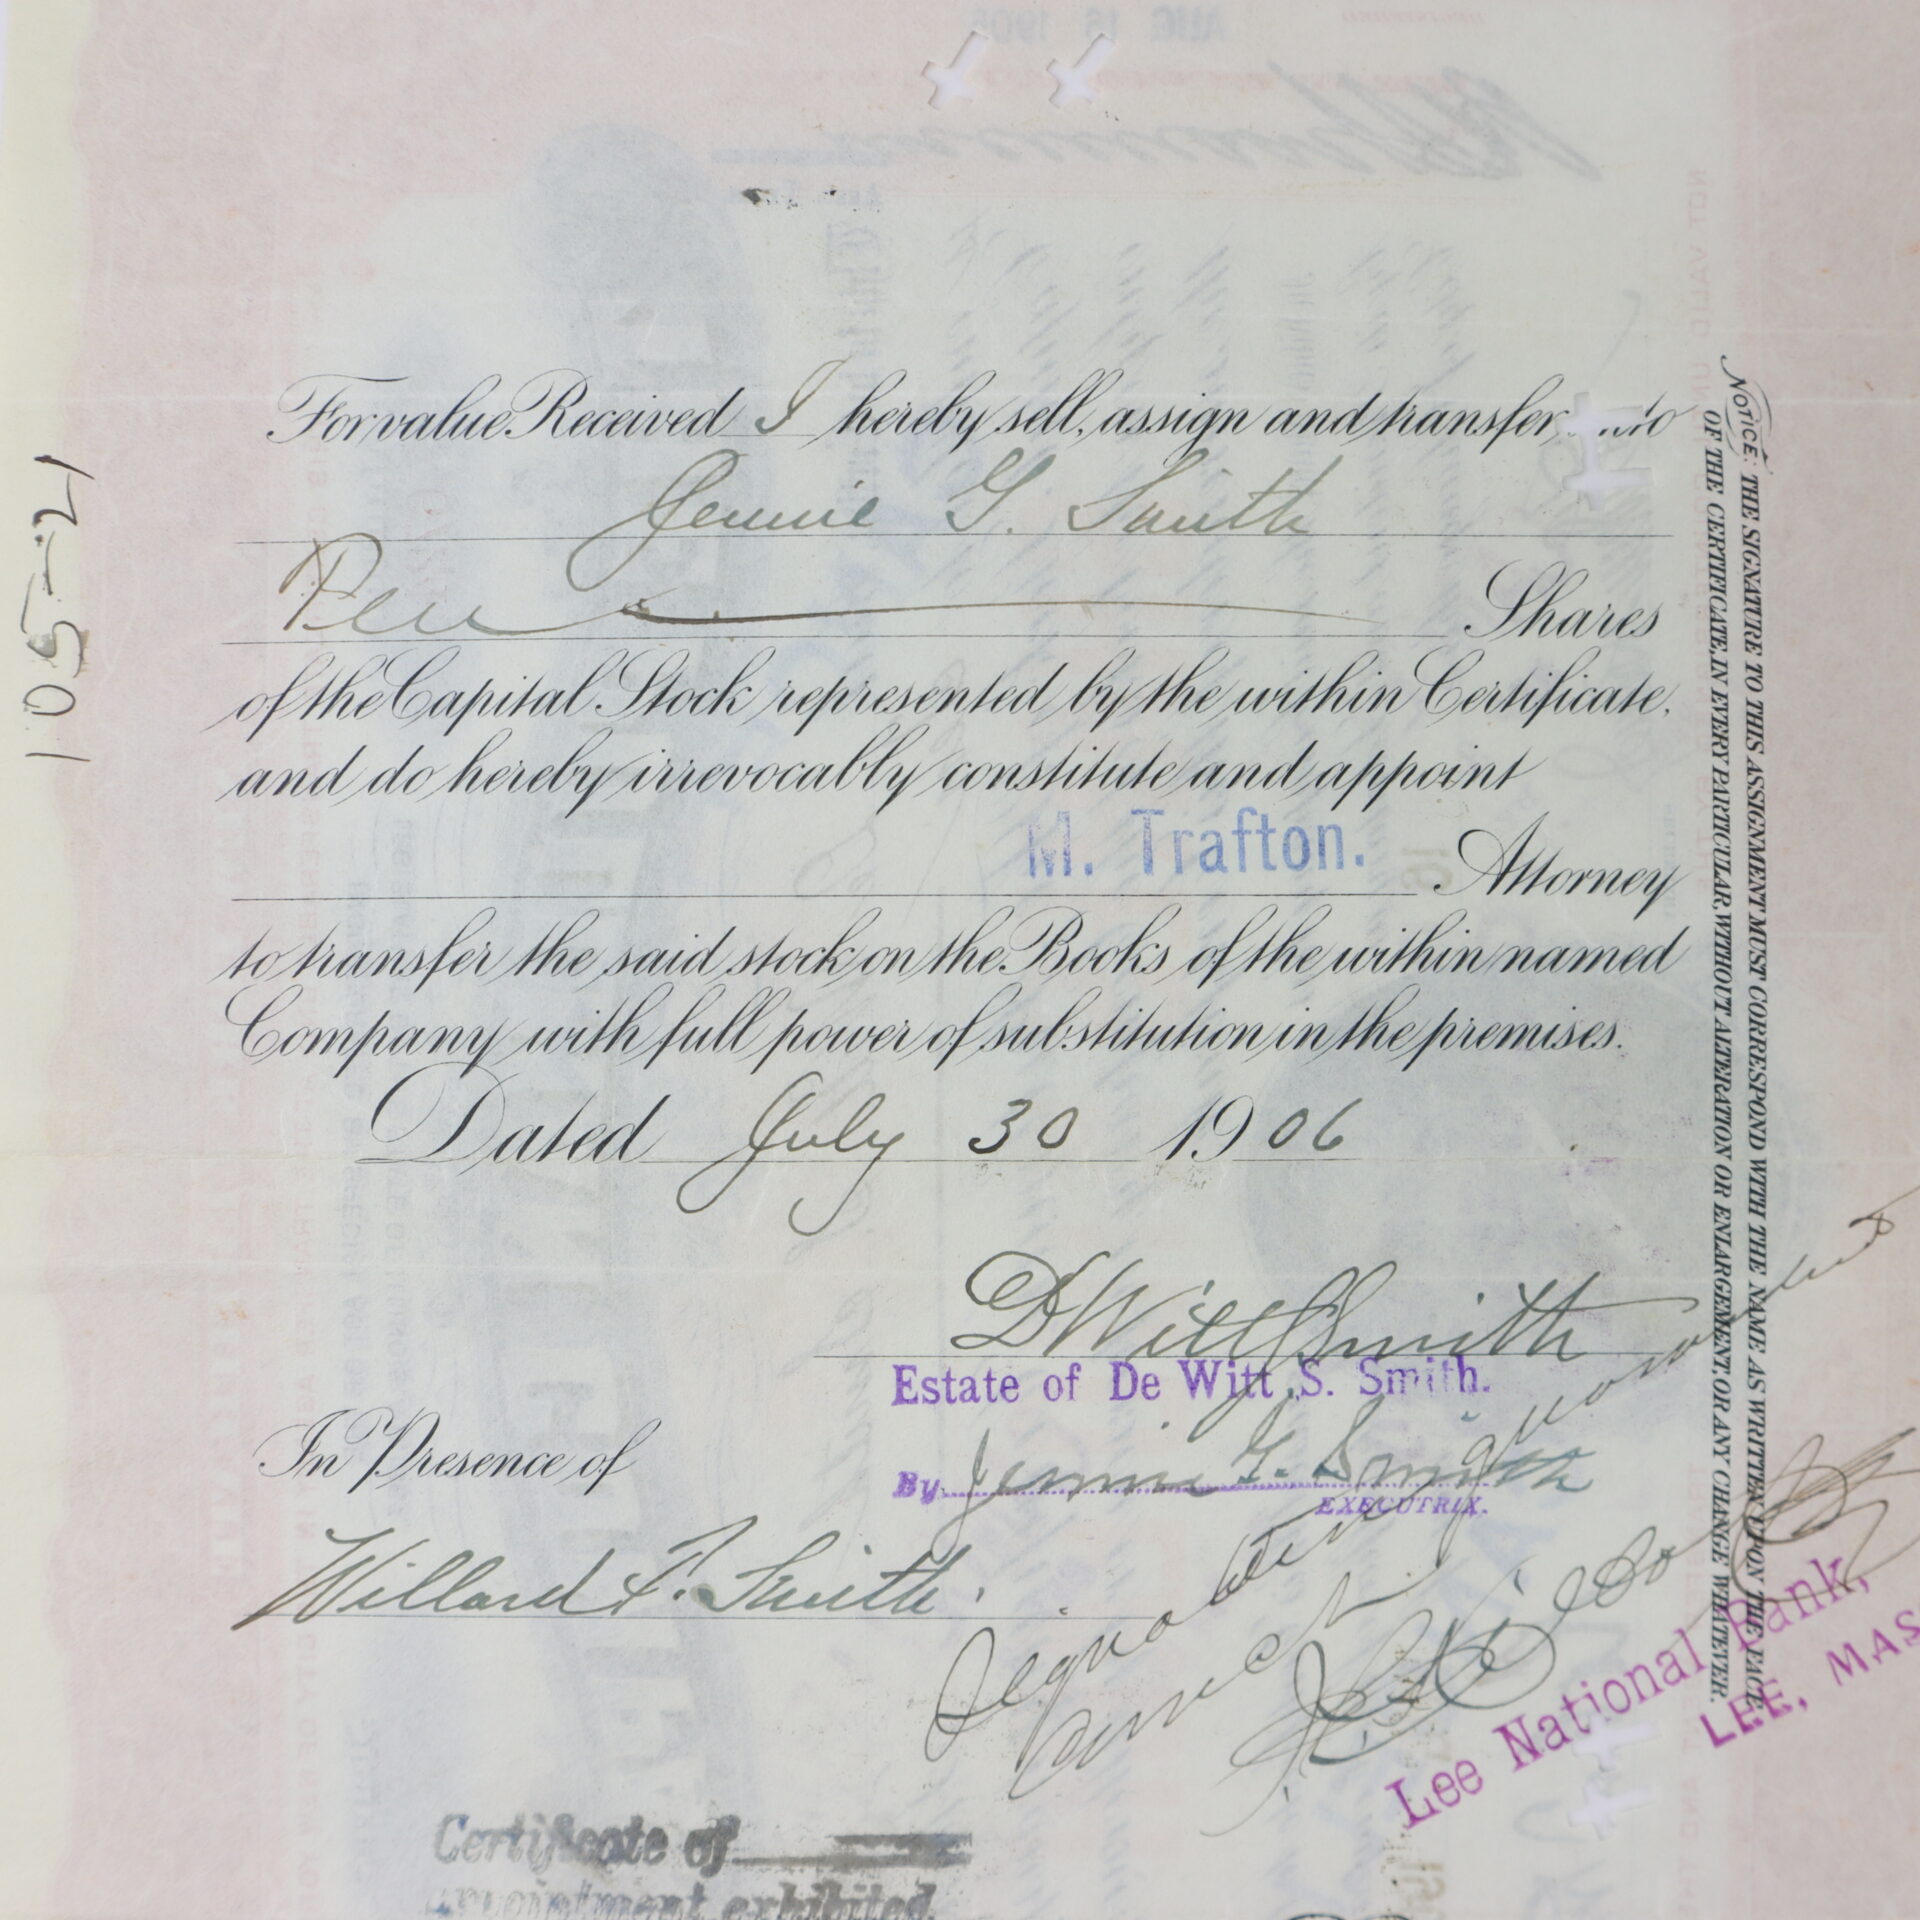 For value Received I hereby sell, assign and transfer
Jennie G. Smith
Ten Shares
of the Capital Stock represented by the within Certificate,
and do hereby irrevocably constitute and appoint
M. Trafton. Attorney
to transfer the said stock on the Books of the within named
Company with full power of substitution in the premises.
Dated July 30 1906
DWitt S Smith
Estate of De Witt S. Smith.
In Presence of
By Jennie G. Smith
EXECUTRIX.
Willard F. Smith.
Signature guaranteed
correct
Lee National Bank,
LEE, MAS
Certificate of
appointment exhibited.
NOTICE: THE SIGNATURE TO THIS ASSIGNMENT MUST CORRESPOND WITH THE NAME AS WRITTEN UPON THE FACE
OF THE CERTIFICATE, IN EVERY PARTICULAR, WITHOUT ALTERATION OR ENLARGEMENT, OR ANY CHANGE WHATEVER.
105-21